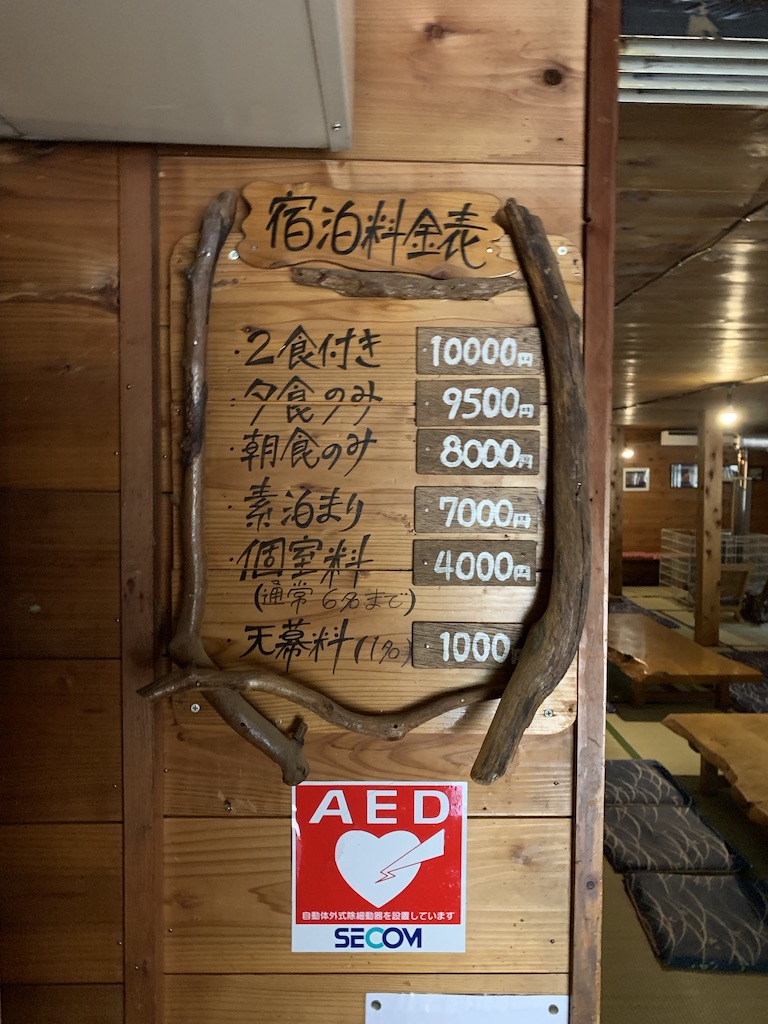 宿泊料金表
・2食付き 10000円
・夕食のみ 9500円
・朝食のみ 8000円
・素泊まり 7000円
・個室料 4000円
(通常6名まで)
・天幕料(1名) 1000円
AED
自動体外式除細動器を設置しています
SECOM